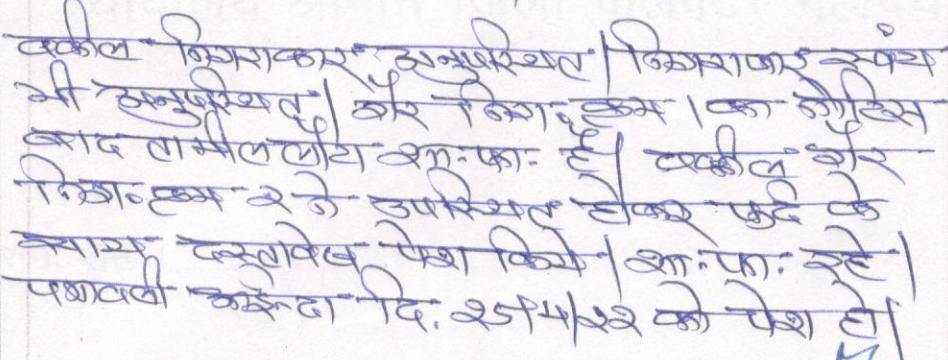 वकील निगराकार अनुपस्थित। निगराकार स्वंय
भी अनुपस्थित। गैर निग. क्रम 1 का नोटिस
बाद तामील लौटा शा.फा. है। वकील गैर
निग. क्रम 2 ने उपस्थित होकर फर्द के
साथ दस्तावेज पेश किये। शा.फा. रहे।
पत्रावली आईन्दा दि. 25/4/22 को पेश हो।